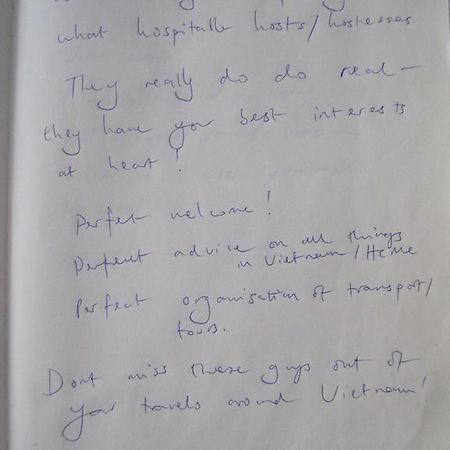 what hospitable hosts/hostesses
They really do do real –
they have your best interests
at heart!
Perfect welcome!
Perfect advice on all things
in Vietnam/HCMC
Perfect organisation of transport/
tours.
Dont miss these guys out of
your travels around Vietnam!